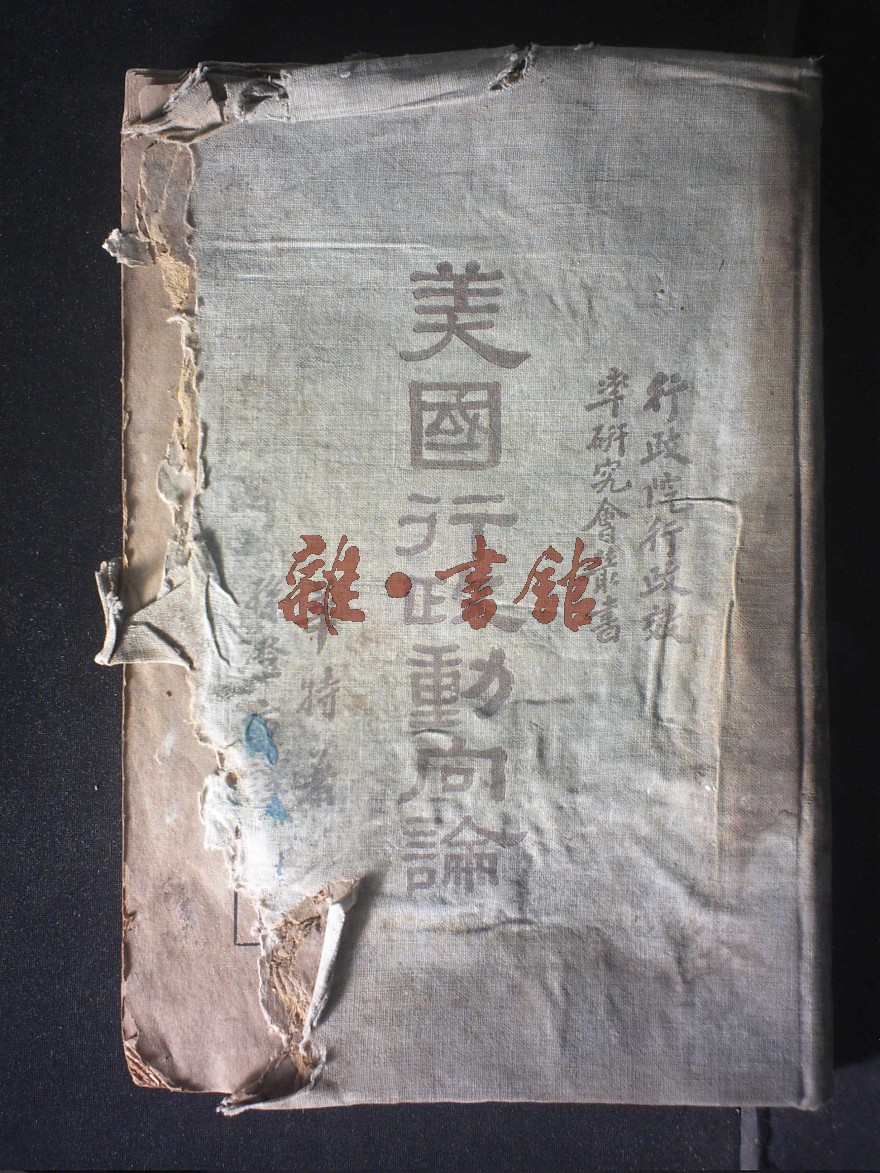 行政院行政效
率研究會叢書
美國行政動向論
特著
孫澄
雜·書館